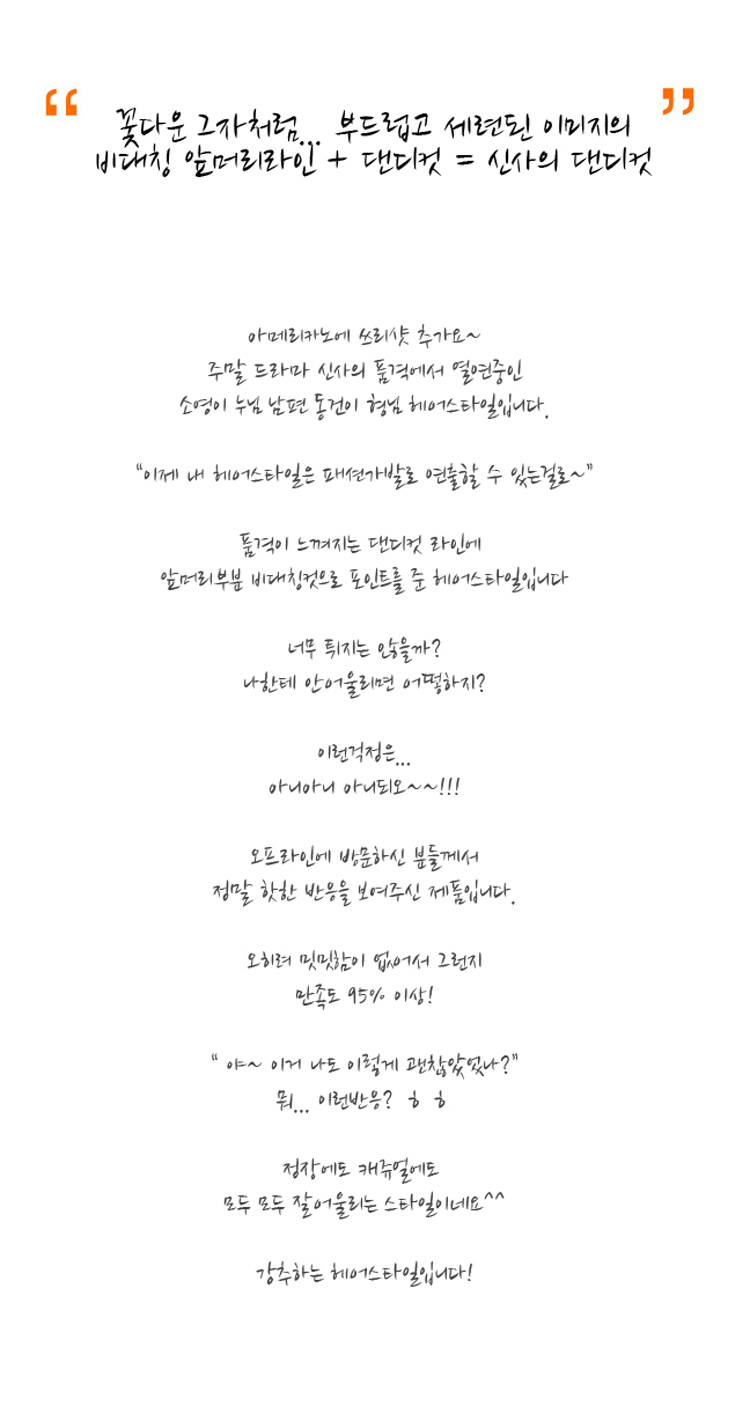 “ 꽃다운 그자처럼... 부드럽고 세련된 이미지의 ”
비대칭 앞머리라인 + 댄디컷 = 신사의 댄디컷
아메리카노에 쓰리샷 추가요~
주말 드라마 신사의 품격에서 열연중인
소영이 누님 남편 동건이 형님 헤어스타일입니다.
“이제 내 헤어스타일은 패션가발로 연출할 수 있는걸로~”
품격이 느껴지는 댄디컷 라인에
앞머리부분 비대칭컷으로 포인트를 준 헤어스타일입니다
너무 튀지는 않을까?
나한테 안어울리면 어떻하지?
이런걱정은...
아니아니 아니되오~~!!!
오프라인에 방문하신 분들께서
정말 핫한 반응을 보여주신 제품입니다.
오히려 밋밋함이 없어서 그런지
만족도 95% 이상!
“ 야~ 이거 나도 이렇게 괜찮았었나?”
뭐... 이런반응? ㅎ ㅎ
정장에도 캐쥬얼에도
모두 모두 잘어울리는 스타일이네요^^
강추하는 헤어스타일입니다!